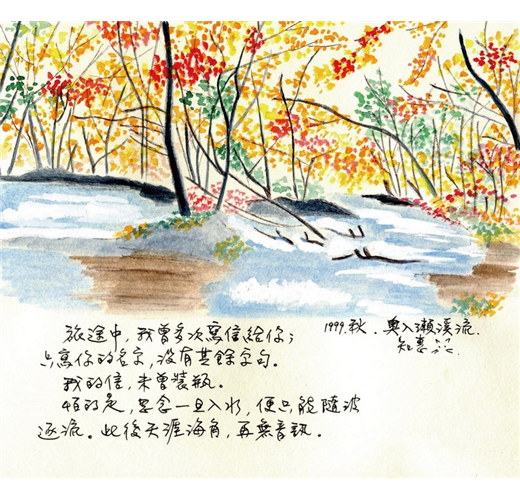 旅途中，我曾多次寫信給你；
只寫你的名字，沒有其餘字句。
我的信，未曾裝瓶。
怕的是，思念一旦入水，便只能隨波
逐流。此後天涯海角，再無音訊。
1999.秋．奧入瀨溪流．
知